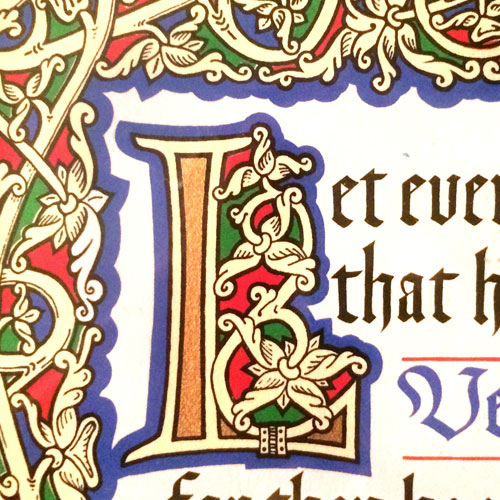 Let ever
that h
Ve
for